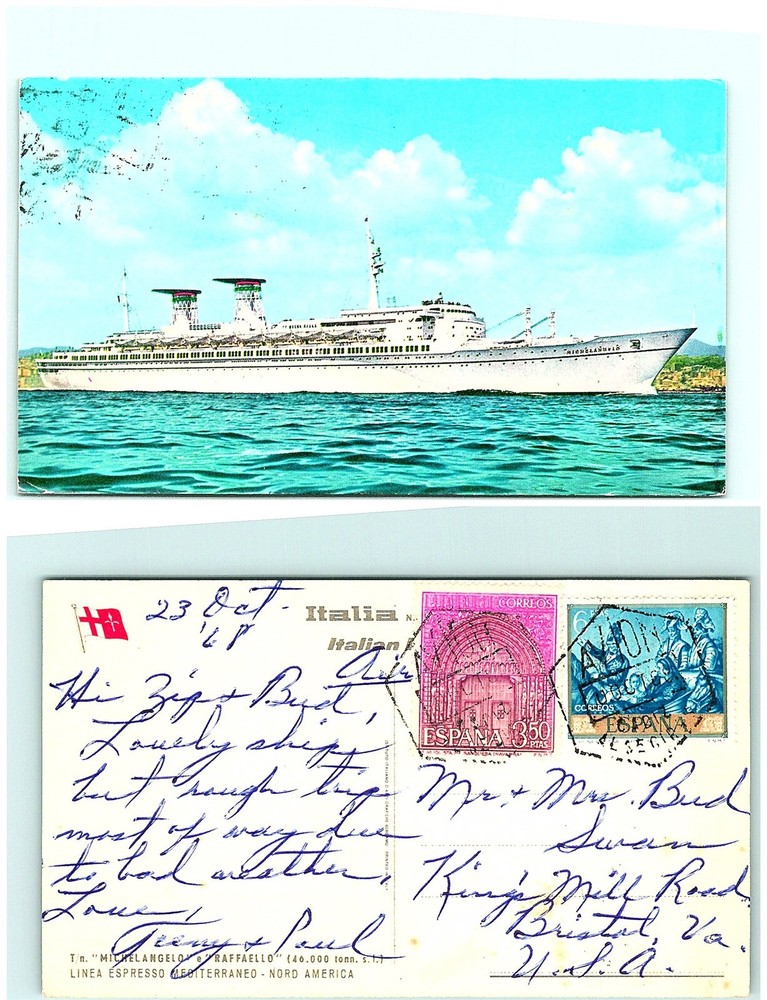 MICHELANGELO
23 Oct.
'68
Italia N.
Italian
Air
Hi Zip & Bud,
Lovely ship
but rough trip
most of way due
to bad weather.
Love,
& Paul
CORREOS
ESPAÑA 3'50
PTAS
AVION
6
CORREOS
ESPAÑA
Mr & Mrs. Bud
Swan
King's Mill Road
Bristol, Va.
U.S.A.
T/n. "MICHELANGELO" e "RAFFAELLO" (46.000 tonn. s.l.)
LINEA ESPRESSO MEDITERRANEO - NORD AMERICA